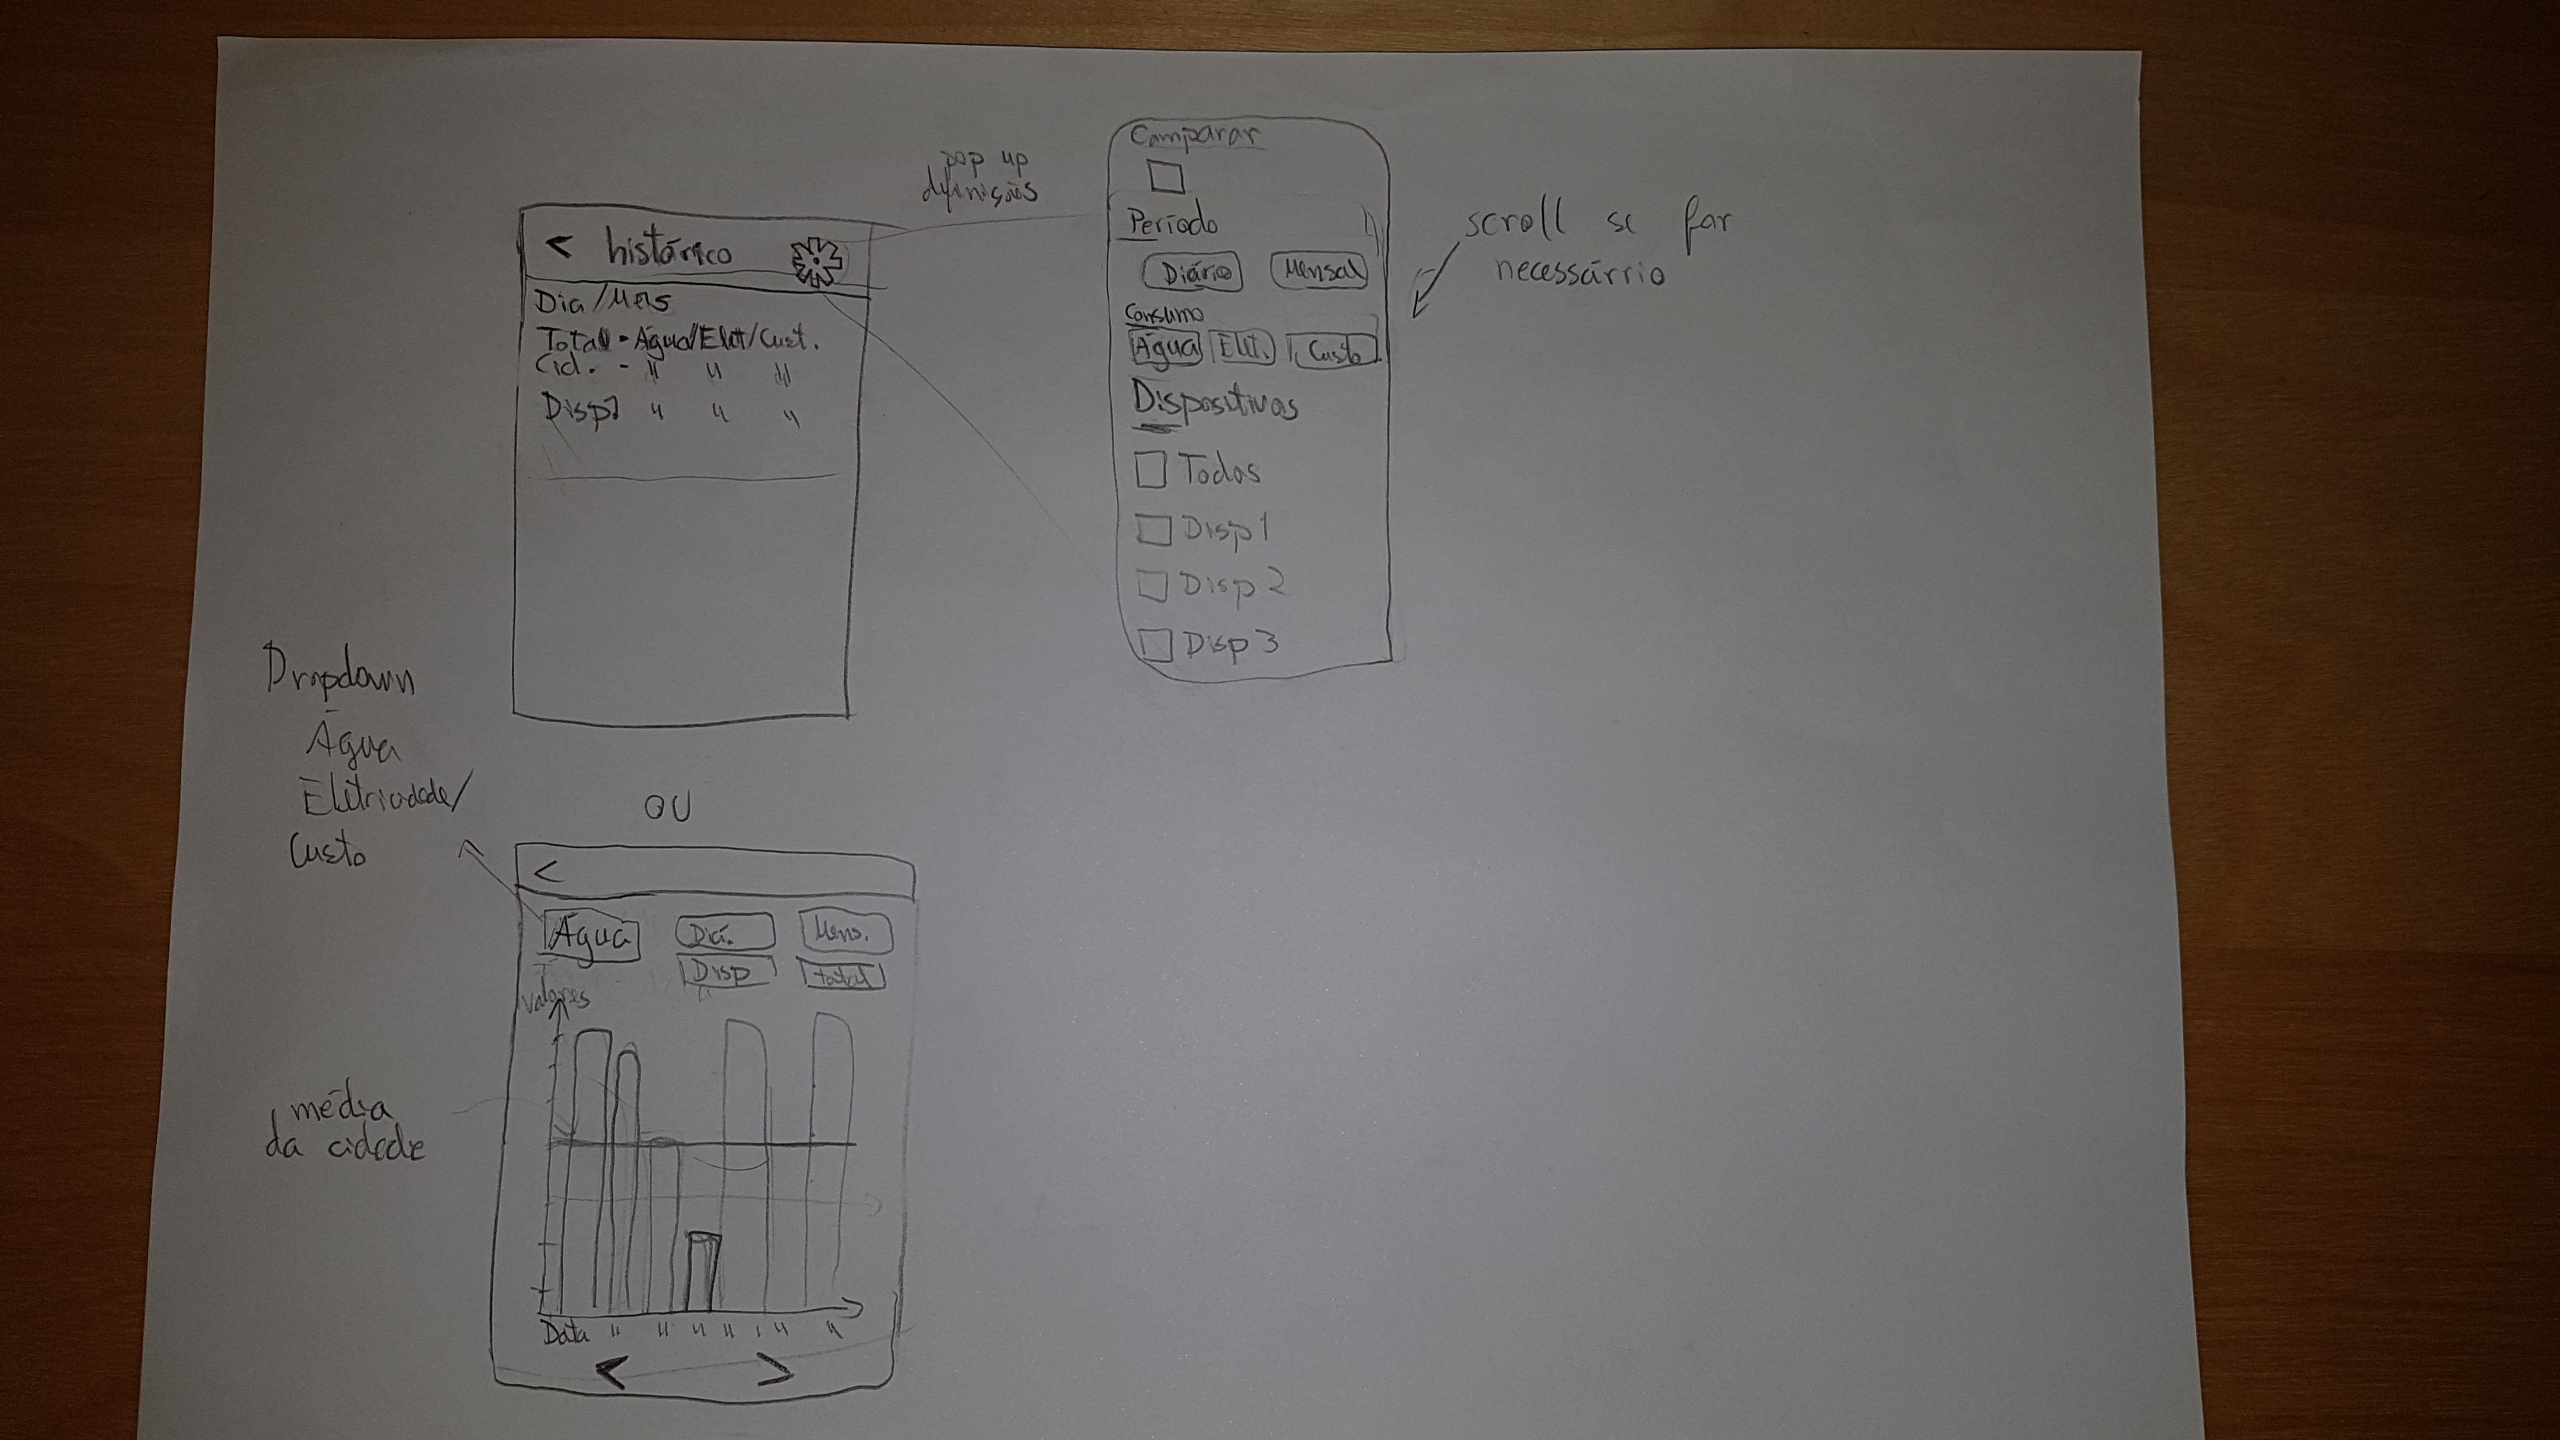 pop up
definisões
< histórico
Dia/Mês
Total - Água/Elet/Cust.
Cid. - " " "
Disp1 " " "
Comparar
Período
Diário Mensal
Consumo
Água Elet. Custo
Dispositivos
Todos
Disp 1
Disp 2
Disp 3
scroll se for
necessárrio
Dropdown
Água
Eletricidade/
Custo
OU
<
Água Diá. Mens.
Disp total
Valores
média
da cidade
Data " " " " " " "
< >